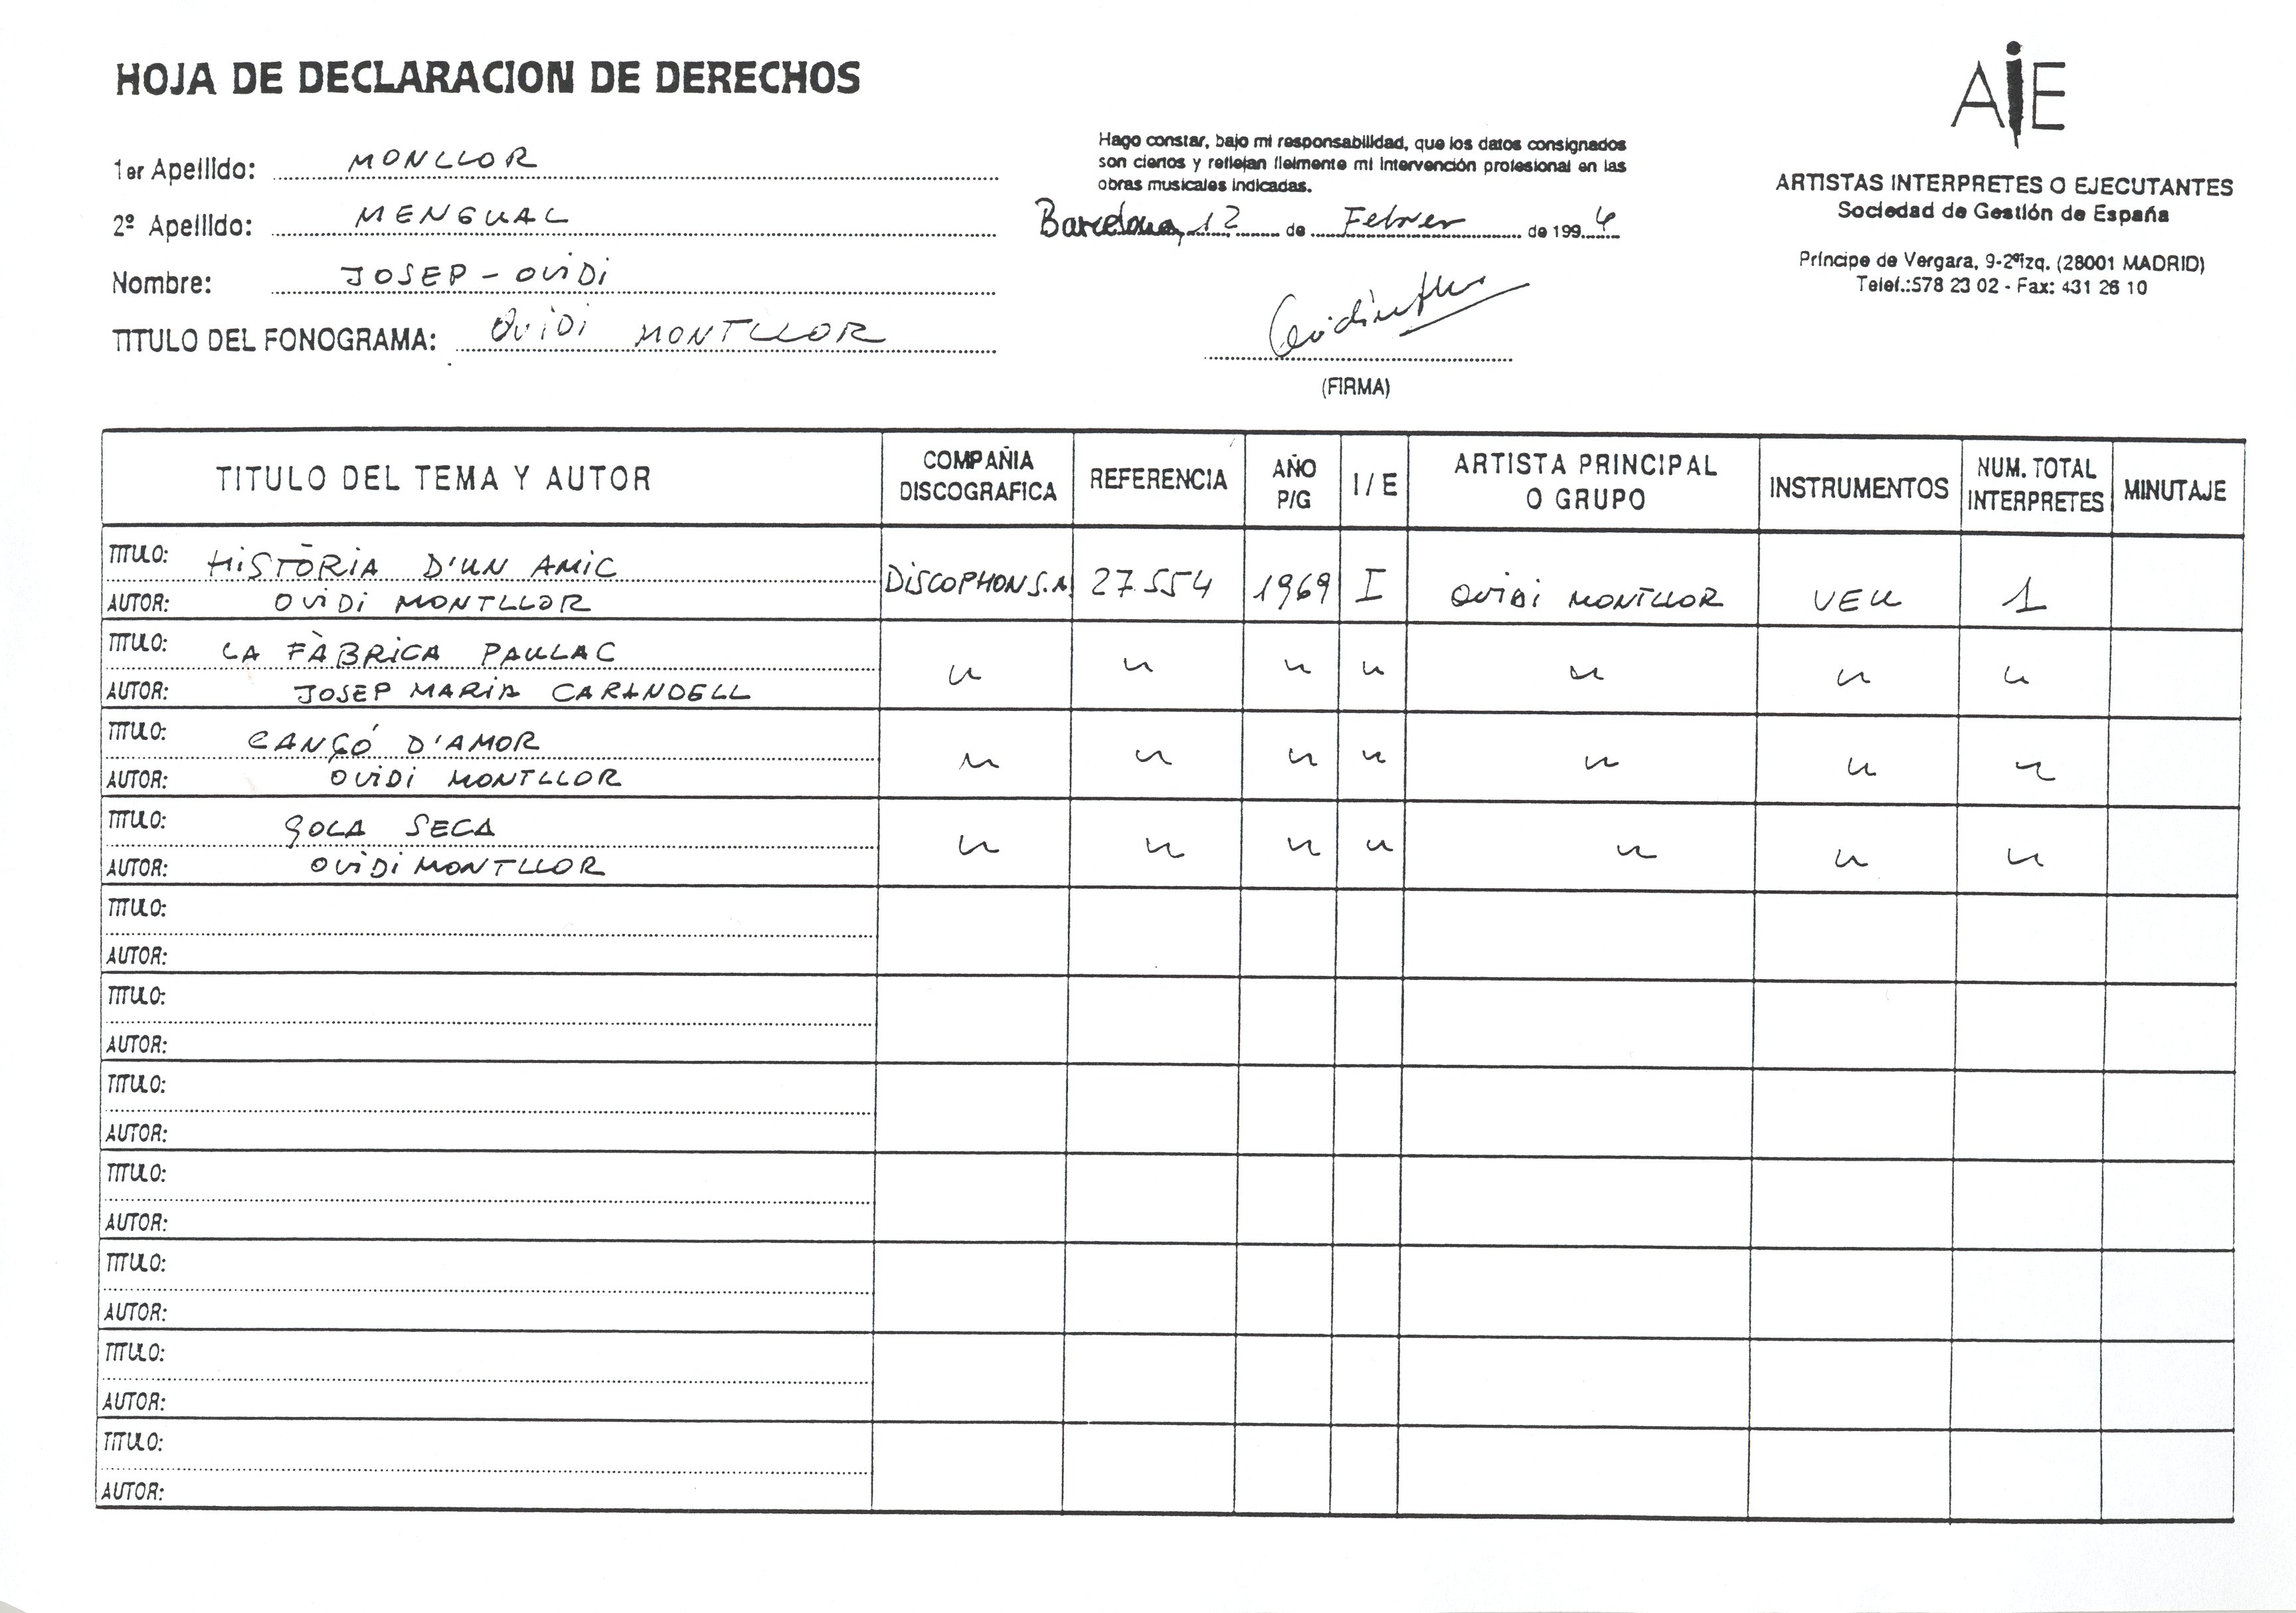 HOJA DE DECLARACION DE DERECHOS
AIE
1er Apellido: MONLLOR
2º Apellido: MENGUAL
Nombre: JOSEP - OVIDI
TITULO DEL FONOGRAMA: OVIDI MONTLLOR
Hago constar, bajo mi responsabilidad, que los datos consignados
son ciertos y reflejan fielmente mi intervención profesional en las
obras musicales indicadas.
Barcelona, 12 de Febrer de 1994
(FIRMA)
ARTISTAS INTERPRETES O EJECUTANTES
Sociedad de Gestión de España
Príncipe de Vergara, 9-2ºizq. (28001 MADRID)
Telef.:578 23 02 - Fax: 431 26 10
TITULO DEL TEMA Y AUTOR COMPAÑIA DISCOGRAFICA REFERENCIA AÑO P/G I / E ARTISTA PRINCIPAL O GRUPO INSTRUMENTOS NUM. TOTAL INTERPRETES MINUTAJE
TITULO: HISTÒRIA D'UN AMIC
AUTOR: OVIDI MONTLLOR
DISCOPHON S.A. 27.554 1969 I OVIDI MONTLLOR VEU 1
TITULO: LA FÀBRICA PAULAC
AUTOR: JOSEP MARIA CARANDELL
" " " " " " "
TITULO: CANÇÓ D'AMOR
AUTOR: OVIDI MONTLLOR
" " " " " " "
TITULO: GOLA SECA
AUTOR: OVIDI MONTLLOR
" " " " " " "
TITULO:
AUTOR:
TITULO:
AUTOR:
TITULO:
AUTOR:
TITULO:
AUTOR:
TITULO:
AUTOR:
TITULO:
AUTOR:
TITULO:
AUTOR: